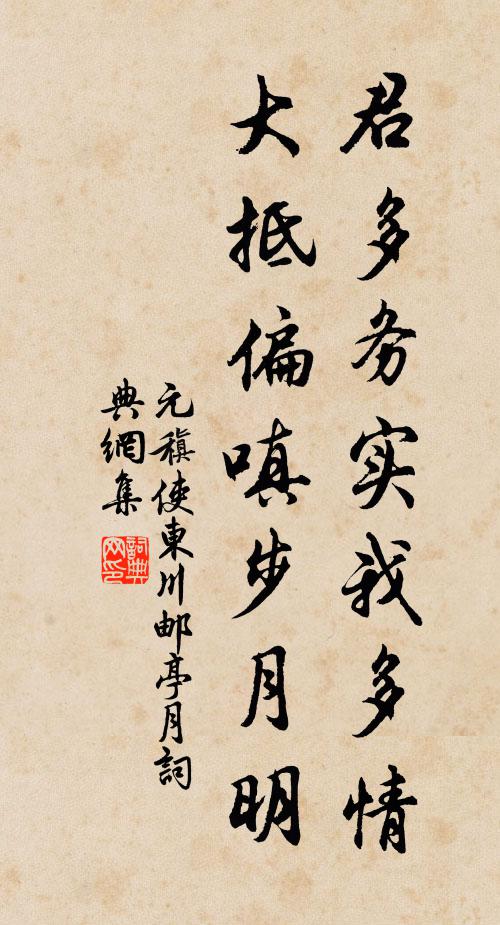 君多务实我多情
大抵偏嗔步月明
元稹使東川邮亭月詞
典網集
詞典
网印